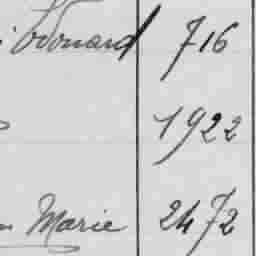 Edouard 716
1922
Marie 2472